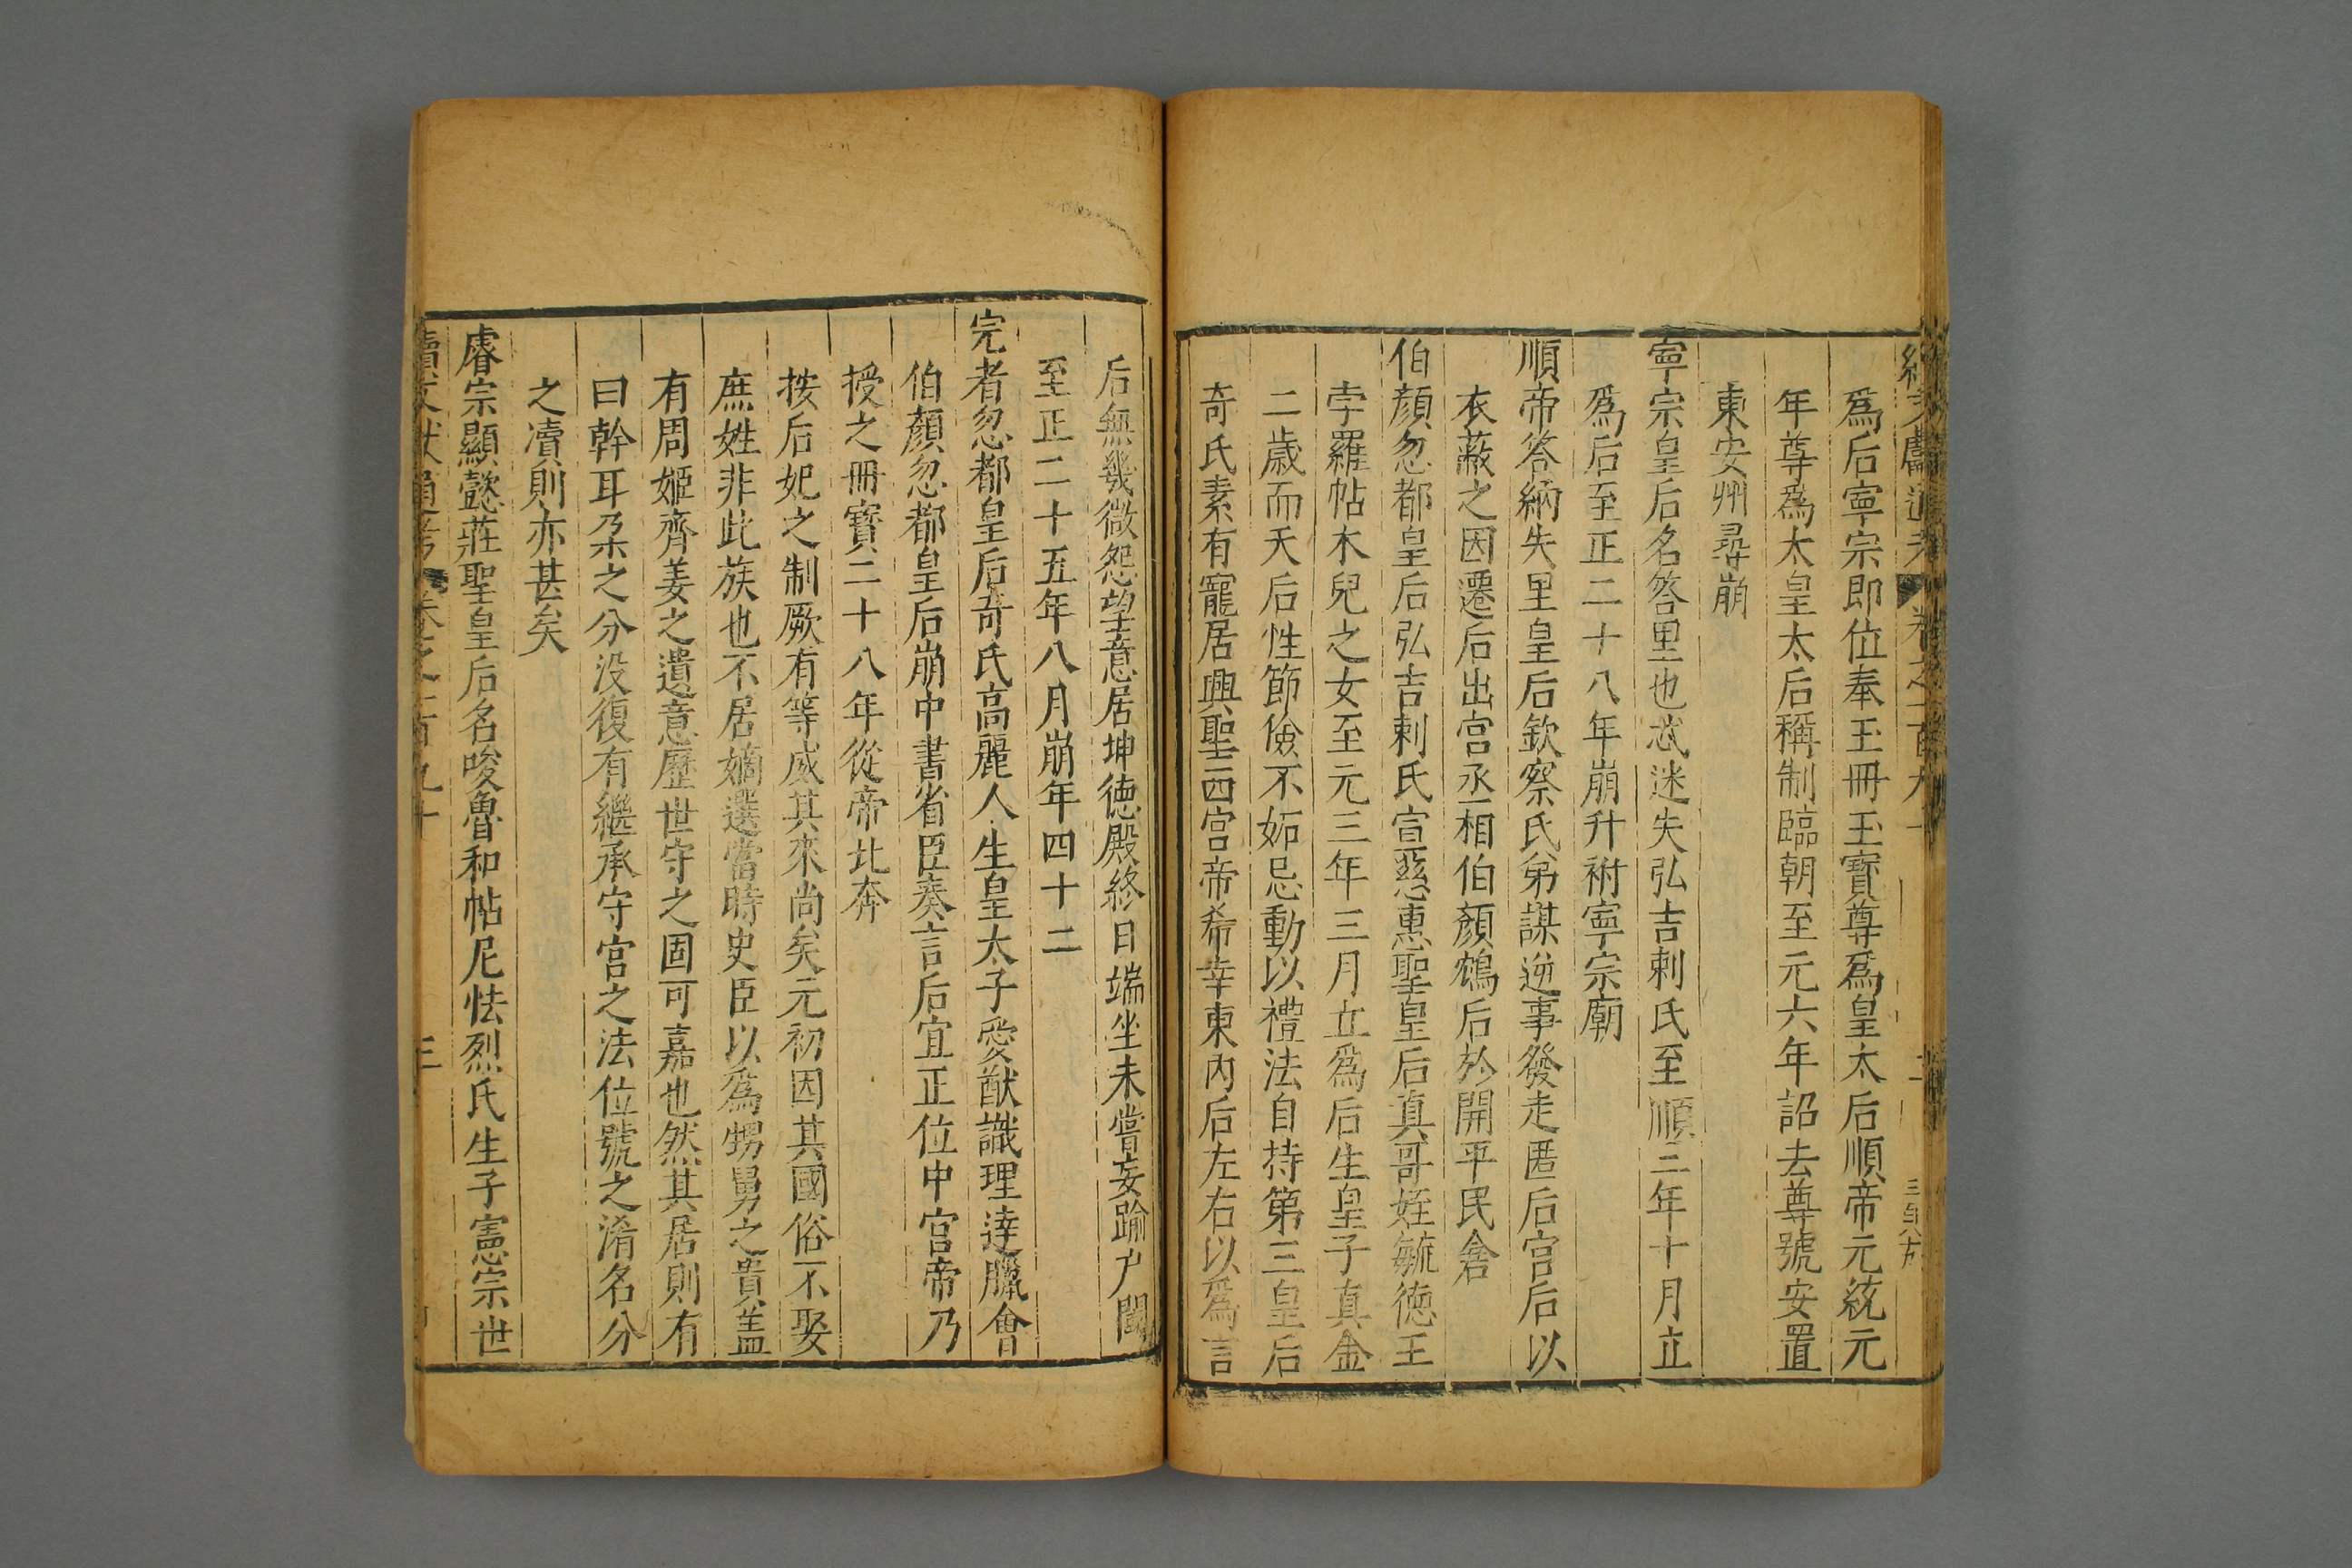 續文獻通考 卷之一百九十
爲后寧宗即位奉玉冊玉寶尊爲皇太后順帝元統元
年尊爲太皇太后稱制臨朝至元六年詔去尊號安置
東安州尋崩
寧宗皇后名答里也忒迷失弘吉剌氏至順二年十月立
爲后至正二十八年崩升祔寧宗廟
順帝答納失里皇后欽察氏弟謀逆事發走匿后宫后以
衣蔽之因遷后出宫丞相伯顔鴆后於開平民舍
伯顔忽都皇后弘吉剌氏宣慈惠聖皇后真哥姪毓德王
孛羅帖木兒之女至元三年三月立爲后生皇子真金
二歲而夭后性節儉不妬忌動以禮法自持第三皇后
奇氏素有寵居興聖西宫帝希幸東内后左右以爲言
后無幾微怨望意居坤德殿終日端坐未嘗妄踰户閾
至正二十五年八月崩年四十二
完者忽都皇后奇氏高麗人生皇太子愛猷識理達臘會
伯顔忽都皇后崩中書省臣奏言后宜正位中宫帝乃
授之冊寶二十八年從帝北奔
按后妃之制厥有等威其來尚矣元初因其國俗不娶
庶姓非此族也不居嫡選當時史臣以爲甥舅之貴蓋
有周姬齊姜之遺意歷世守之固可嘉也然其居則有
曰斡耳朶之分没復有繼承守宫之法位號之淆名分
之凟則亦甚矣
睿宗顯懿莊聖皇后名唆魯和帖尼怯烈氏生子憲宗世
續文獻通考 卷之一百九十 三